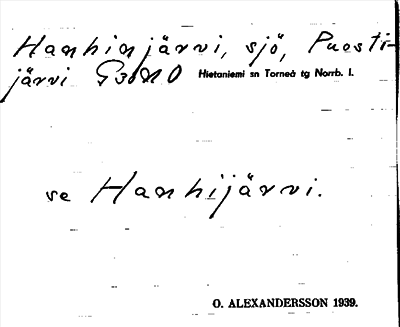 Hanhinjärvi, sjö, Puosti-
järvi G30NO Hietaniemi sn Torneå tg Norrb. l.
se Hanhijärvi.
O. ALEXANDERSSON 1939.